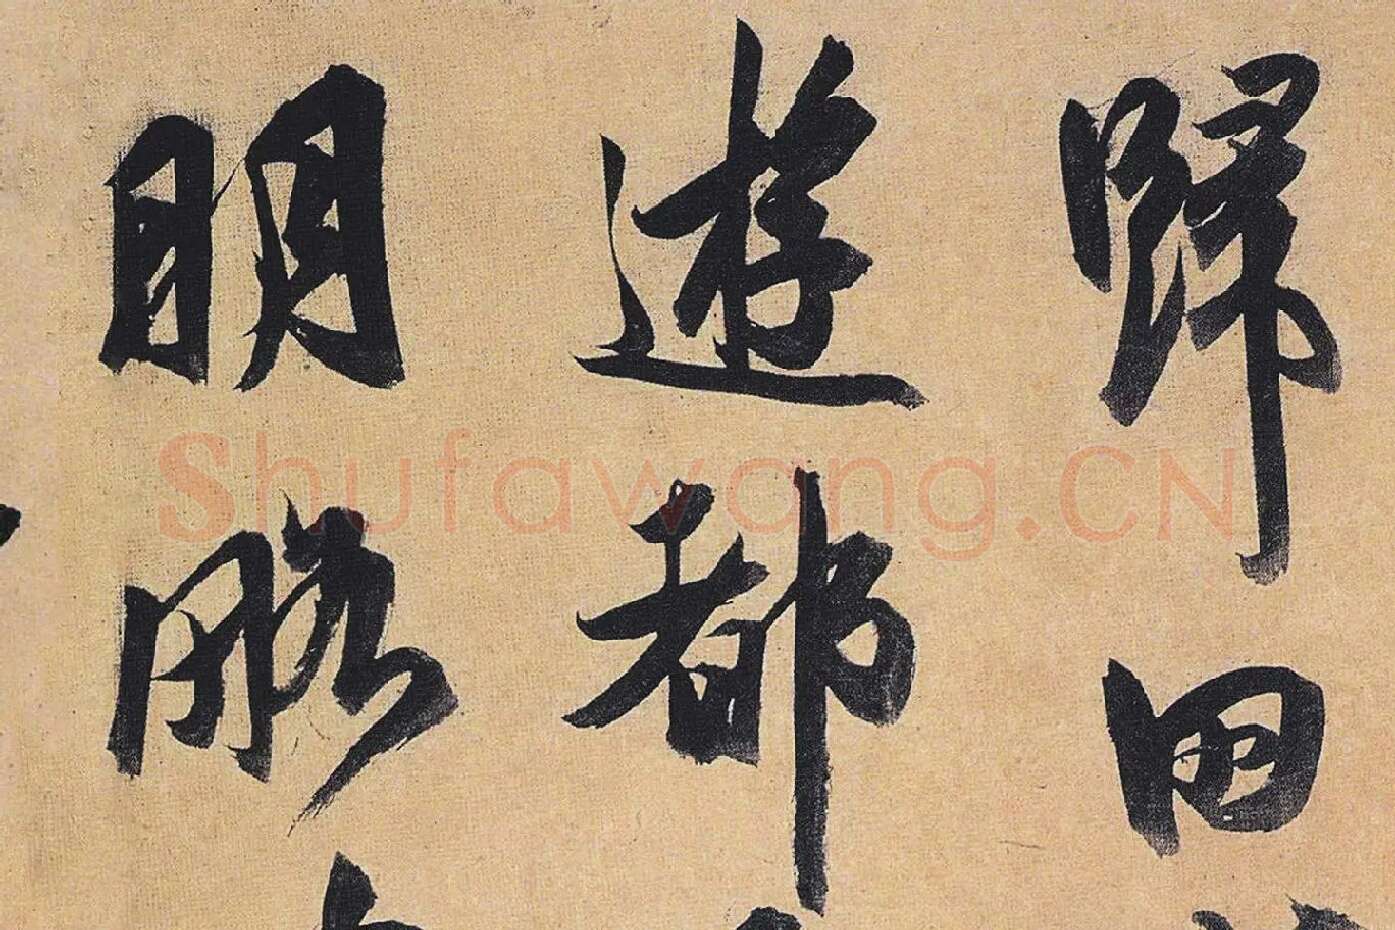 歸田
遊都
明略
Shufawang.CN